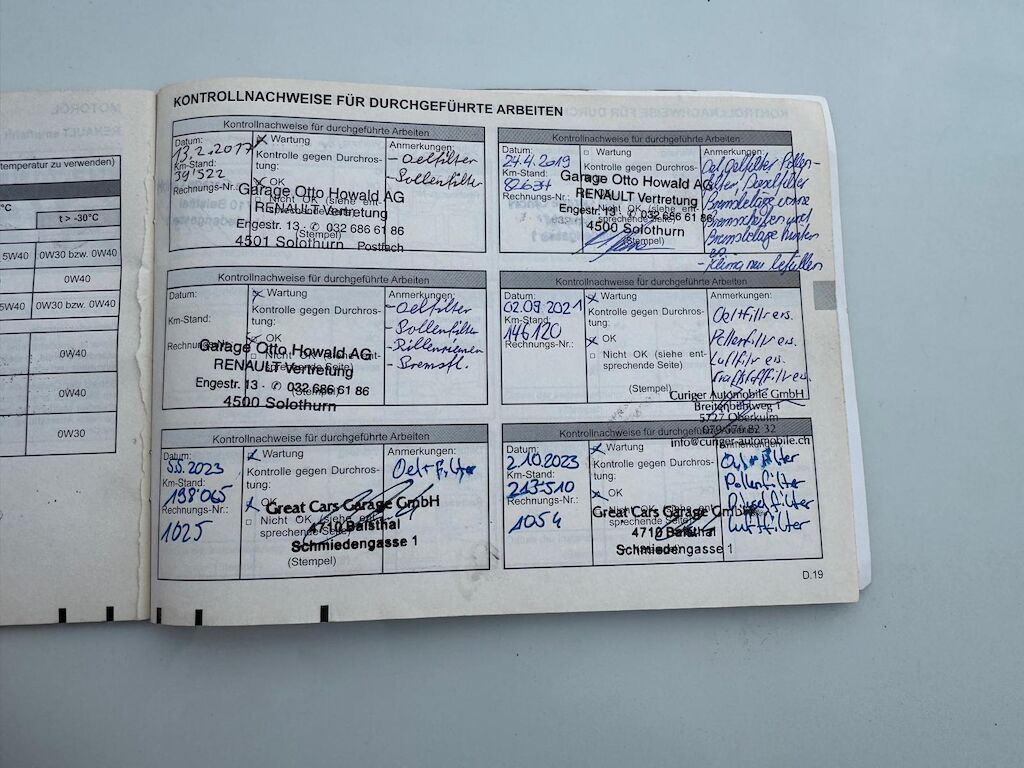 temperatur zu verwenden)
°C
t > -30°C
5W40
0W30 bzw. 0W40
0W40
5W40
0W30 bzw. 0W40
0W40
0W40
0W30
KONTROLLNACHWEISE FÜR DURCHGEFÜHRTE ARBEITEN
Kontrollnachweise für durchgeführte Arbeiten
Datum:
13.2.2017
Km-Stand:
39'522
Rechnungs-Nr.:
Wartung
Kontrolle gegen Durchros-
tung:
OK
Nicht OK (siehe ent-
sprechende Seite)
(Stempel)
Anmerkungen:
- Oelfilter
- Pollenfilter
Garage Otto Howald AG
RENAULT Vertretung
Engestr. 13 · ✆ 032 686 61 86
4501 Solothurn Postfach
Kontrollnachweise für durchgeführte Arbeiten
Datum:
24.4.2019
Km-Stand:
82634
Rechnungs-Nr.:
Wartung
Kontrolle gegen Durchros-
tung:
OK
Nicht OK (siehe ent-
sprechende Seite)
(Stempel)
Anmerkungen:
Oel, Oelfilter Pollen-
filter, Dieselfilter
Bremsbeläge vorne
Bremsscheiben und
Bremsbeläge hinten
- Klima neu befüllen
Garage Otto Howald AG
RENAULT Vertretung
Engestr. 13 · ✆ 032 686 61 86
4500 Solothurn
Kontrollnachweise für durchgeführte Arbeiten
Datum:
Km-Stand:
Rechnungs-Nr.:
Wartung
Kontrolle gegen Durchros-
tung:
OK
Nicht OK (siehe ent-
sprechende Seite)
Anmerkungen:
- Oelfilter
- Pollenfilter
- Rillenriemen
- Bremsfl.
Garage Otto Howald AG
RENAULT Vertretung
Engestr. 13 · ✆ 032 686 61 86
4500 Solothurn
Kontrollnachweise für durchgeführte Arbeiten
Datum:
02.09.2021
Km-Stand:
146120
Rechnungs-Nr.:
Wartung
Kontrolle gegen Durchros-
tung:
OK
Nicht OK (siehe ent-
sprechende Seite)
(Stempel)
Anmerkungen:
Curiger Automobile GmbH
Breitenbühlweg 1
5727 Oberkulm
info@curiger-automobile.ch
Kontrollnachweise für durchgeführte Arbeiten
Datum:
5.5.2023
Km-Stand:
198'065
Rechnungs-Nr.:
1025
Wartung
Kontrolle gegen Durchros-
tung:
OK
Nicht OK (siehe ent-
sprechende Seite)
(Stempel)
Anmerkungen:
Oel + Filter
Great Cars Garage GmbH
4710 Balsthal
Schmiedengasse 1
Kontrollnachweise für durchgeführte Arbeiten
Datum:
2.10.2023
Km-Stand:
213-510
Rechnungs-Nr.:
1054
Wartung
Kontrolle gegen Durchros-
tung:
OK
Nicht OK (siehe ent-
sprechende Seite)
Anmerkungen:
Oel + Filter
Pollenfilter
Dieselfilter
Luftfilter
Great Cars Garage GmbH
4710 Balsthal
Schmiedengasse 1
D.19